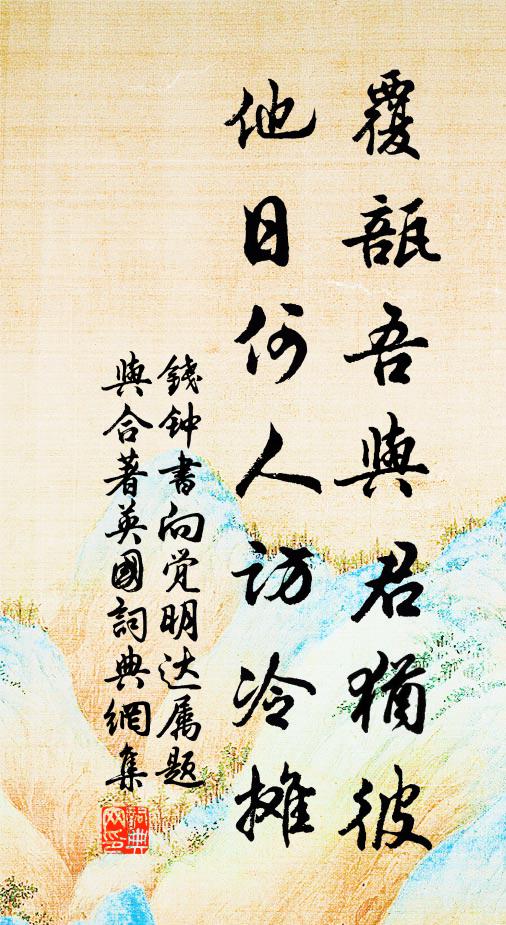 覆瓿吾與君猶彼
他日何人訪冷摊
錢钟書向覚明达属題
與合著英國詞典網集
詞典
网印